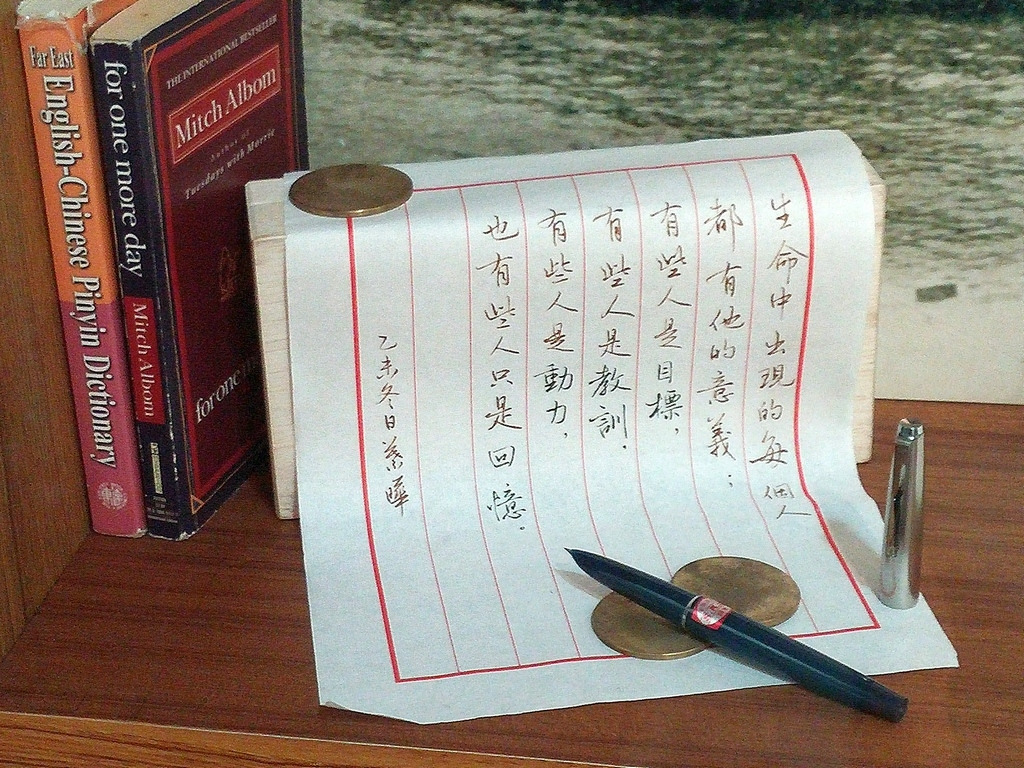 Far East
English-Chinese Pinyin Dictionary
for one more day
Mitch Albom
THE INTERNATIONAL BESTSELLER
Mitch Albom
Author of
Tuesdays with Morrie
for one
生命中出現的每個人
都有他的意義；
有些人是目標，
有些人是教訓．
有些人是動力，
也有些人只是回憶．
乙未冬日